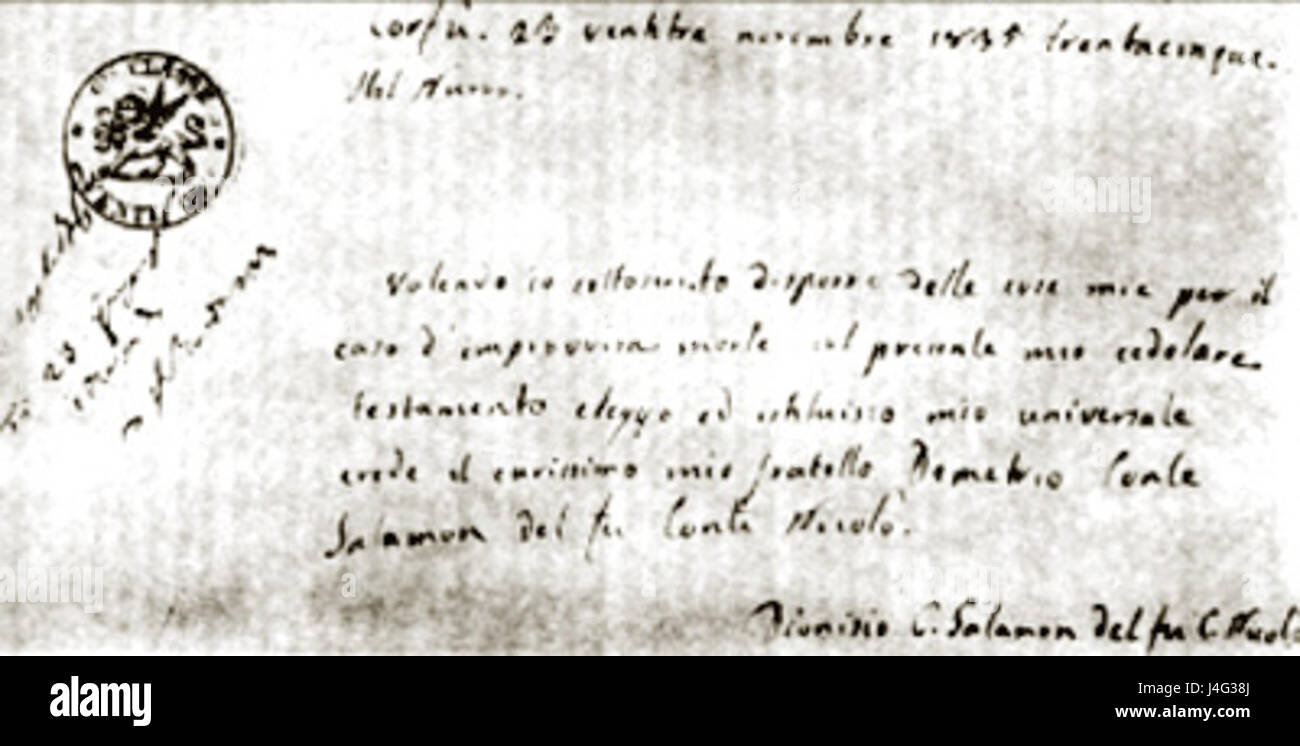 Corfù. 23 ventitre novembre 1835 trentacinque.
Volendo io sottoscritto disporre delle cose mie per il
caso d'improvvisa morte col presente mio cedolare
testamento eleggo ed istituisco mio universale
erede il carissimo mio fratello Demetrio Conte
Salamon del fu Conte Nicolò.
Dionisio C. Salamon del fu C. Nicolò
23
alamy
Image ID: J4G38J
www.alamy.com